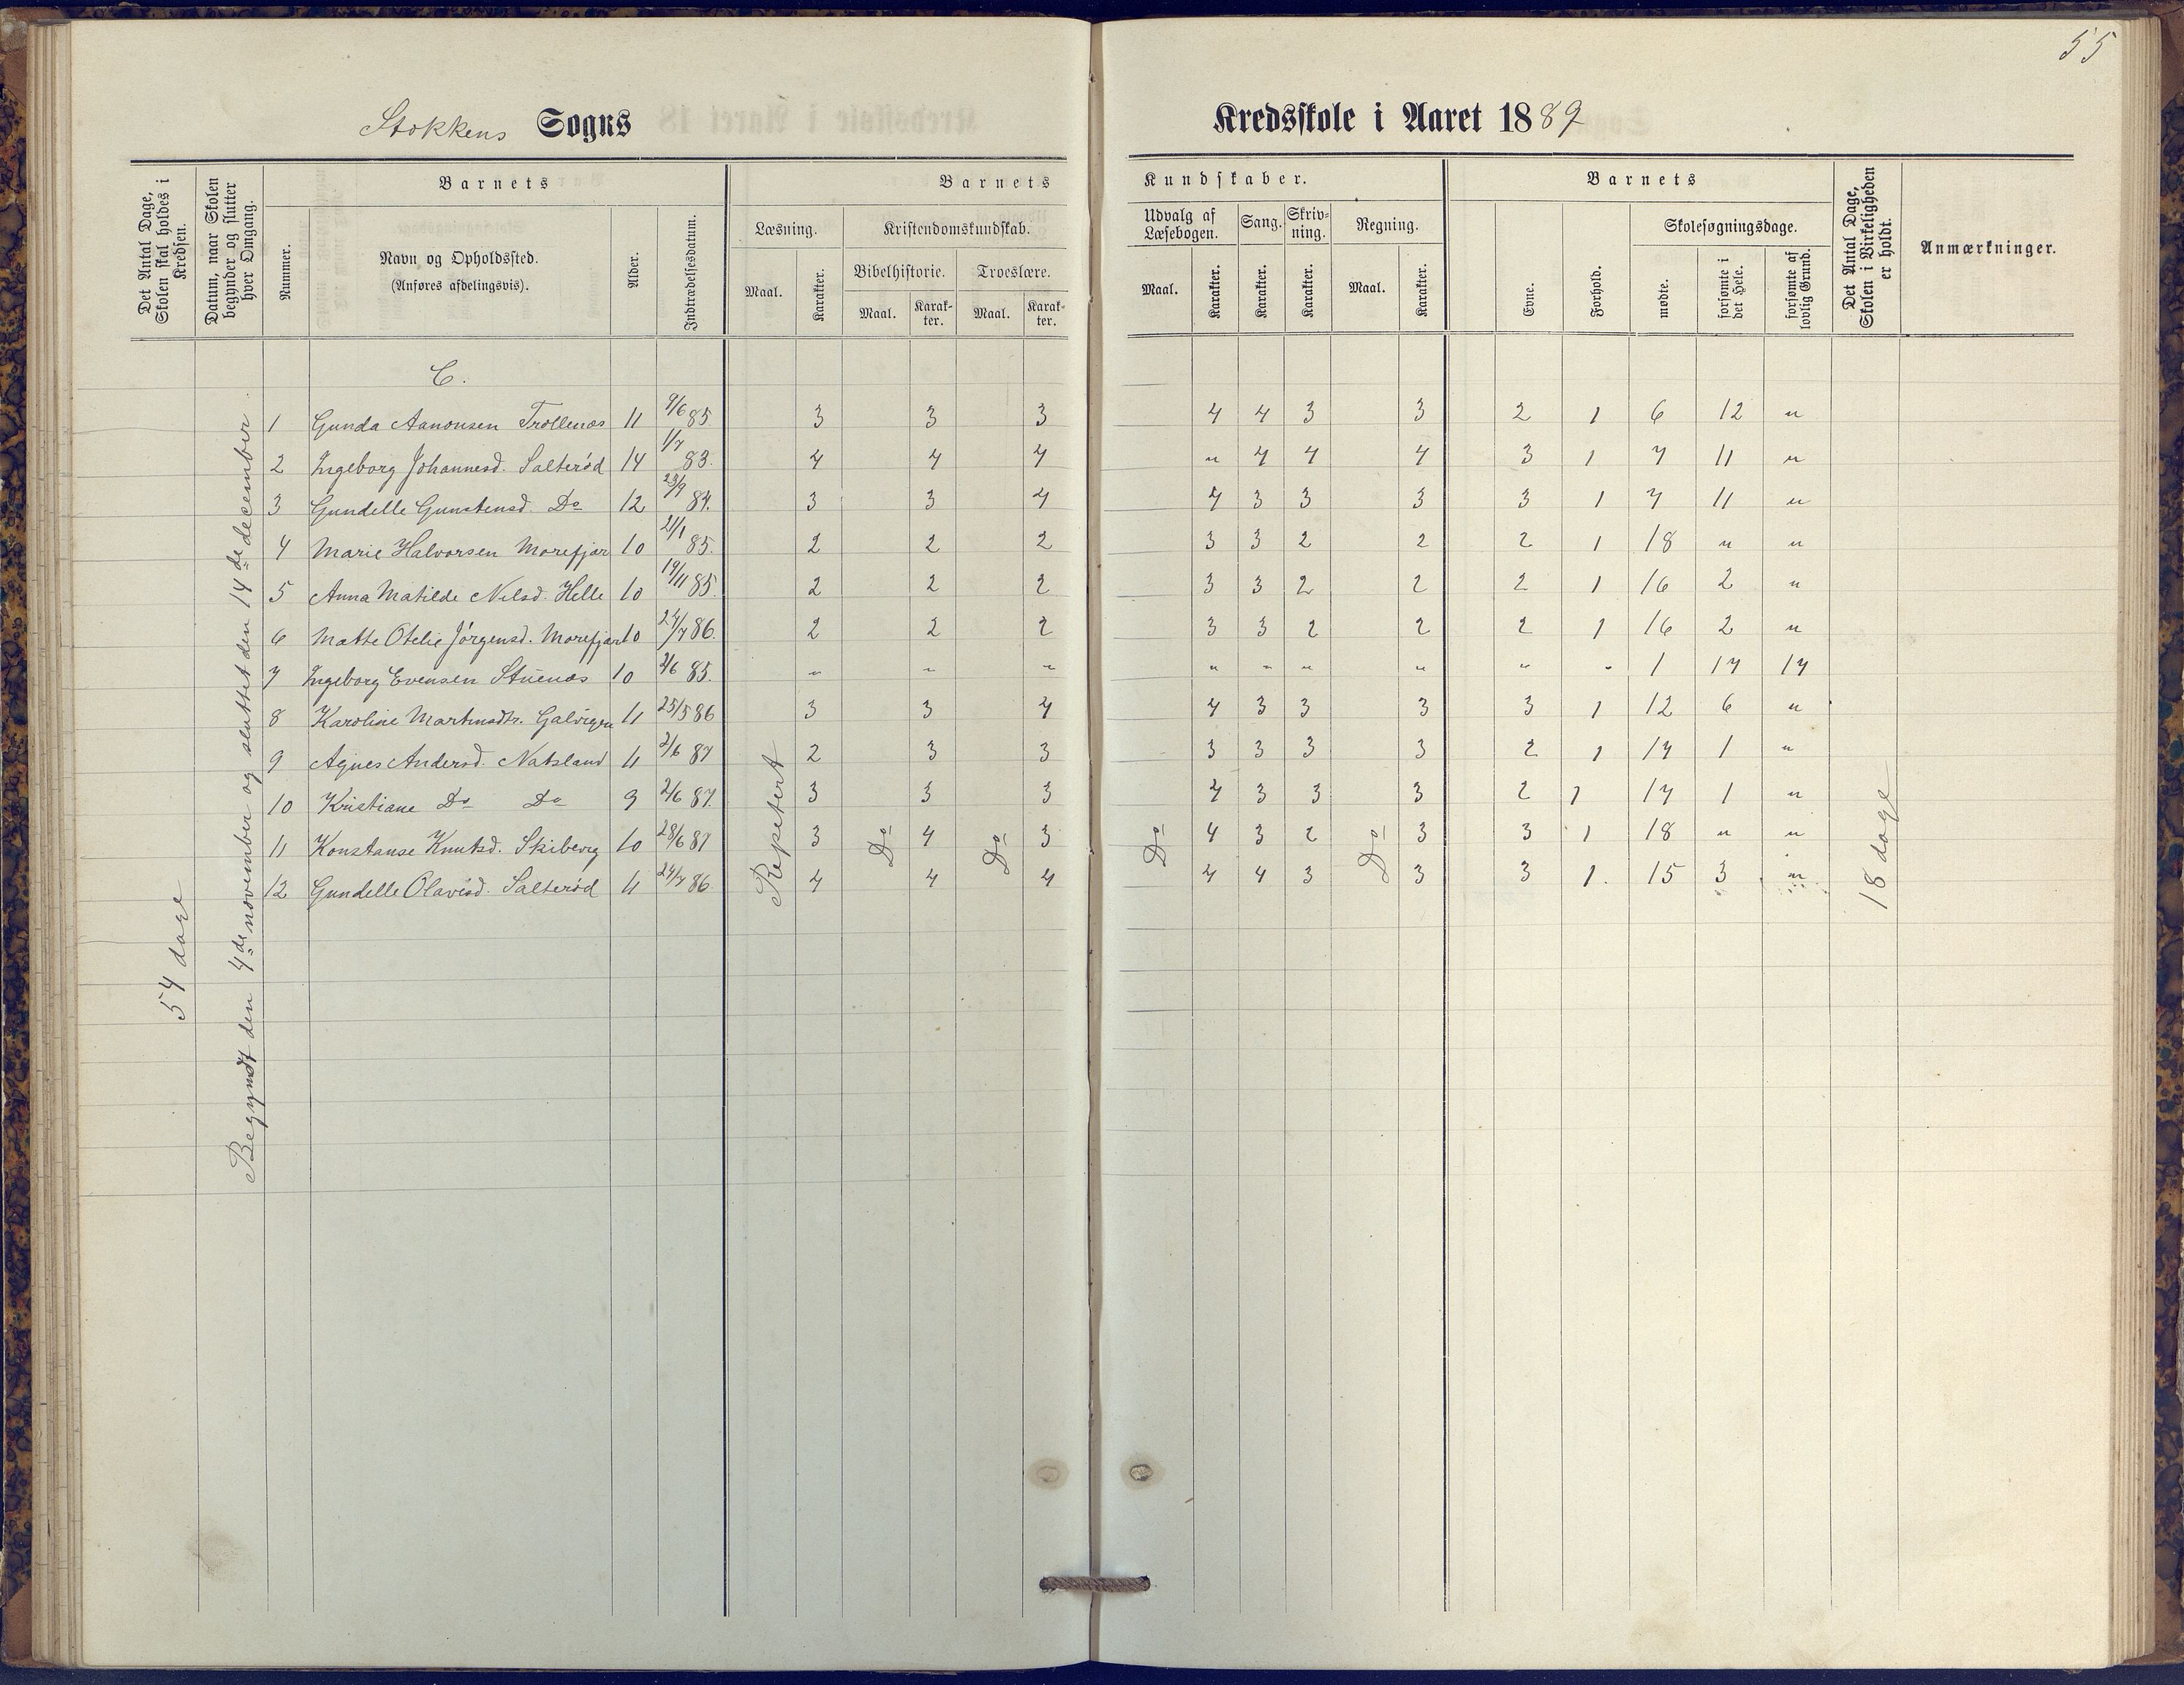 55
Stokkens Sogns
Kredsskole i Aaret 1889
Det Antal Dage, Skolen skal holdes i Kredsen.
Datum, naar Skolen begynder og slutter hver Omgang.
Barnets
Nummer.
Navn og Opholdssted.
(Anføres afdelingsvis).
Alder.
Indtrædelsesdatum.
Barnets
Læsning.
Kristendomskundskab.
Maal.
Karakter.
Bibelhistorie.
Troeslære.
Maal.
Karakter.
Maal.
Karakter.
Kundskaber.
Udvalg af Læsebogen.
Sang.
Skrivning.
Regning.
Maal.
Karakter.
Karakter.
Karakter.
Maal.
Karakter.
Barnets
Evne.
Forhold.
Skolesøgningsdage.
mødte.
forsømte i det Hele.
forsømte af lovlig Grund.
Det Antal Dage, Skolen i Virkeligheden er holdt.
Anmærkninger.
C.
1 Gunda Aanonsen Trollenæs 11 9/6 85. 3 3 3 4 4 3 3 2 1 6 12 "
2 Ingeborg Johannesd. Salterød 14 1/7 83. 4 4 4 " 4 4 4 3 1 7 11 "
3 Gundelle Gunstensd. Do 12 23/9 84. 3 3 4 4 3 3 3 3 1 7 11 "
4 Marie Halvorsen Morefjær 10 21/1 85. 2 2 2 3 3 2 2 2 1 18 " "
5 Anna Matilde Nilsd. Helle 10 19/11 85. 2 2 2 3 3 2 2 2 1 16 2 "
6 Matte Otelie Jørgensd. Morefjær 10 27/7 86. 2 2 2 3 3 2 2 2 1 16 2 "
7 Ingeborg Evensen Stuenæs 10 2/6 85. " " " " " " " " " 1 17 17
8 Karoline Martinsdtr. 11 25/5 86 3 3 4 4 3 3 3 3 1 12 6 "
9 Agnes Andersd. Natsland 11 2/6 87 2 3 3 3 3 3 3 2 1 17 1 "
10 Kristiane Do Do 9 2/6 87. 3 3 3 4 3 3 3 2 1 17 1 "
11 Konstanse Knutsd. Skiberg 10 28/6 87 3 4 3 4 3 2 3 3 1 18 " "
12 Gundelle Olavisd. Salterød 11 24/7 86. 4 4 4 4 4 3 3 3 1. 15 3 "
54 dage
Begyndt den 4de november og sluttet den 14de december.
Repetert
Do
Do
Do
Do
18 dage